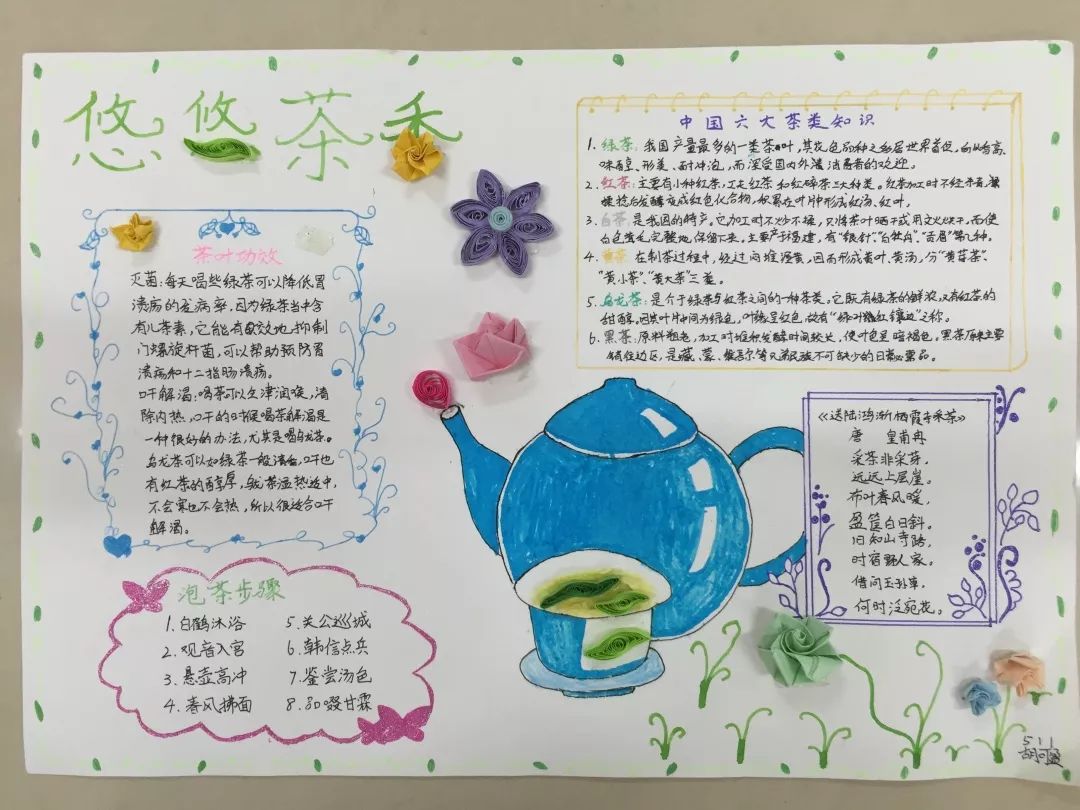 悠悠茶香
茶叶功效
灭菌:每天喝些绿茶可以降低胃
溃疡的发病率,因为绿茶当中含
有儿茶素,它能有效地抑制
门螺旋杆菌,可以帮助预防胃
溃疡和十二指肠溃疡。
口干解渴:喝茶可以生津润喉,清
除内热,口干的时候喝茶解渴是
一种很好的办法,尤其是喝乌龙茶。
乌龙茶可以如绿茶一般清香,口中也
有红茶的醇厚,茶温热适中,
不会寒也不会热,所以很适合口干
解渴。
泡茶步骤
1.白鹤沐浴
2.观音入宫
3.悬壶高冲
4.春风拂面
5.关公巡城
6.韩信点兵
7.鉴尝汤色
8.品啜甘霖
中国六大茶类知识
1.绿茶:我国产量最多的一类茶叶,其花色品种之多居世界首位,而以香高、
味醇、形美、耐冲泡,而深受国内外消费者的欢迎。
2.红茶:主要有小种红茶,工夫红茶和红碎茶三大种类。红茶加工时不经杀青,萎
揉捻后发酵变成红色化合物,积累在叶片中形成红汤、红叶。
3.白茶:是我国的特产。它加工时不炒不揉,只将茶叶晒干或用文火烘干,而使
白色茸毛完整地保留下来。主要产于福建,有“银针”、“白牡丹”、“贡眉”等几种。
4.黄茶:在制茶过程中,经过闷堆渥黄,因而形成黄叶、黄汤,分“黄芽茶”、
“黄小茶”、“黄大茶”三类。
5.乌龙茶:是介于绿茶与红茶之间的一种茶类。它既有绿茶的鲜浓,又有红茶的
甜醇。因其叶片中间为绿色,叶缘呈红色,故有“绿叶红镶边”之称。
6.黑茶:原料粗老,加工时堆积发酵时间较长,使叶色呈暗褐色。黑茶原来主要
销往边区,是藏、蒙、维吾尔等兄弟民族不可缺少的日常必需品。
《送陆鸿渐栖霞寺采茶》
唐 皇甫冉
采茶非采芽,
远远上层崖。
布叶春风暖,
盈筐白日斜。
旧知山寺路,
时宿野人家。
借问王孙草,
何时泛碗花。
511